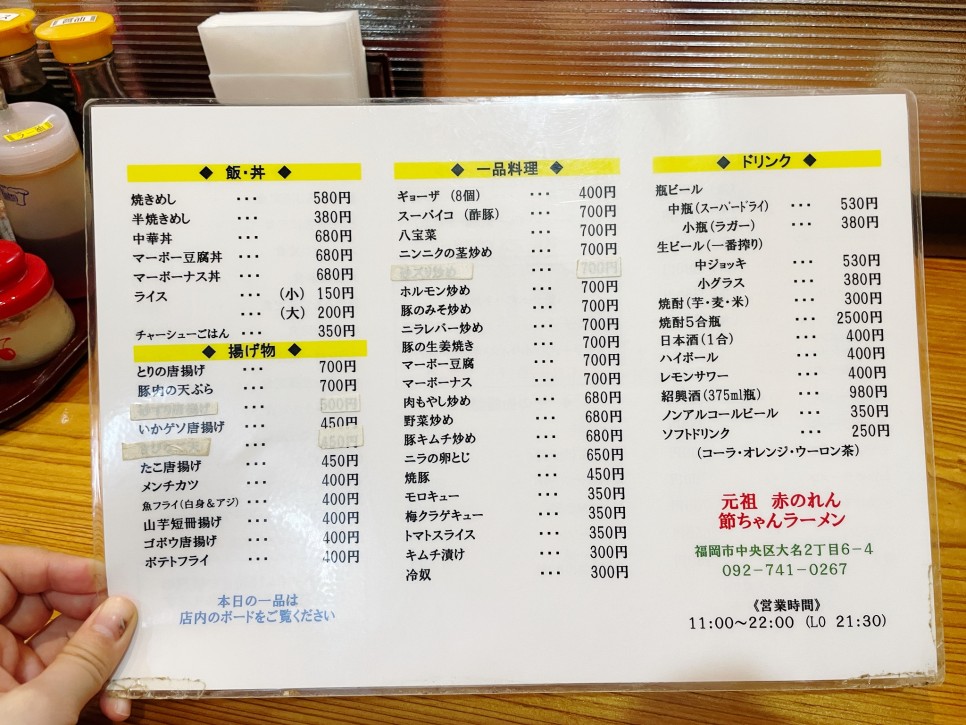 ◆ 飯・丼 ◆
焼きめし ・・・ 580円
半焼きめし ・・・ 380円
中華丼 ・・・ 680円
マーボー豆腐丼 ・・・ 680円
マーボーナス丼 ・・・ 680円
ライス ・・・ (小) 150円
・・・ (大) 200円
チャーシューごはん ・・・ 350円
◆ 揚げ物 ◆
とりの唐揚げ ・・・ 700円
豚肉の天ぷら ・・・ 700円
砂ずり唐揚げ ・・・ 500円
いかゲソ唐揚げ ・・・ 450円
・・・ 450円
たこ唐揚げ ・・・ 450円
メンチカツ ・・・ 400円
魚フライ(白身&アジ) ・・・ 400円
山芋短冊揚げ ・・・ 400円
ゴボウ唐揚げ ・・・ 400円
ポテトフライ ・・・ 400円
本日の一品は
店内のボードをご覧ください
◆ 一品料理 ◆
ギョーザ (8個) ・・・ 400円
スーパイコ (酢豚) ・・・ 700円
八宝菜 ・・・ 700円
ニンニクの茎炒め ・・・ 700円
砂ズリ炒め ・・・ 700円
ホルモン炒め ・・・ 700円
豚のみそ炒め ・・・ 700円
ニラレバー炒め ・・・ 700円
豚の生姜焼き ・・・ 700円
マーボー豆腐 ・・・ 700円
マーボーナス ・・・ 700円
肉もやし炒め ・・・ 680円
野菜炒め ・・・ 680円
豚キムチ炒め ・・・ 680円
ニラの卵とじ ・・・ 650円
焼豚 ・・・ 450円
モロキュー ・・・ 350円
梅クラゲキュー ・・・ 350円
トマトスライス ・・・ 350円
キムチ漬け ・・・ 300円
冷奴 ・・・ 300円
◆ ドリンク ◆
瓶ビール
中瓶(スーパードライ) ・・・ 530円
小瓶(ラガー) ・・・ 380円
生ビール(一番搾り)
中ジョッキ ・・・ 530円
小グラス ・・・ 380円
焼酎(芋・麦・米) ・・・ 300円
焼酎5合瓶 ・・・ 2500円
日本酒(1合) ・・・ 400円
ハイボール ・・・ 400円
レモンサワー ・・・ 400円
紹興酒(375ml瓶) ・・・ 980円
ノンアルコールビール ・・・ 350円
ソフトドリンク ・・・ 250円
(コーラ・オレンジ・ウーロン茶)
元祖 赤のれん
節ちゃんラーメン
福岡市中央区大名2丁目6-4
092-741-0267
《営業時間》
11:00～22:00 (LO 21:30)